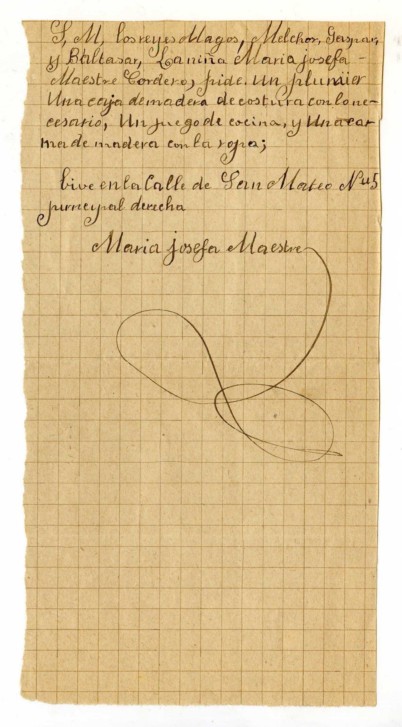 S, M, los reyes Magos, Melchor, Gaspar,
y Baltasar, La niña Maria josefa -
Maestre Cordero, pide. Un plumier
Una caja de madera de costura con lo ne-
cesario, Un juego de cocina, y Una ca
ma de madera con la ropa;
bive en la Calle de San Mateo Nº 5
principal derecha
Maria josefa Maestre